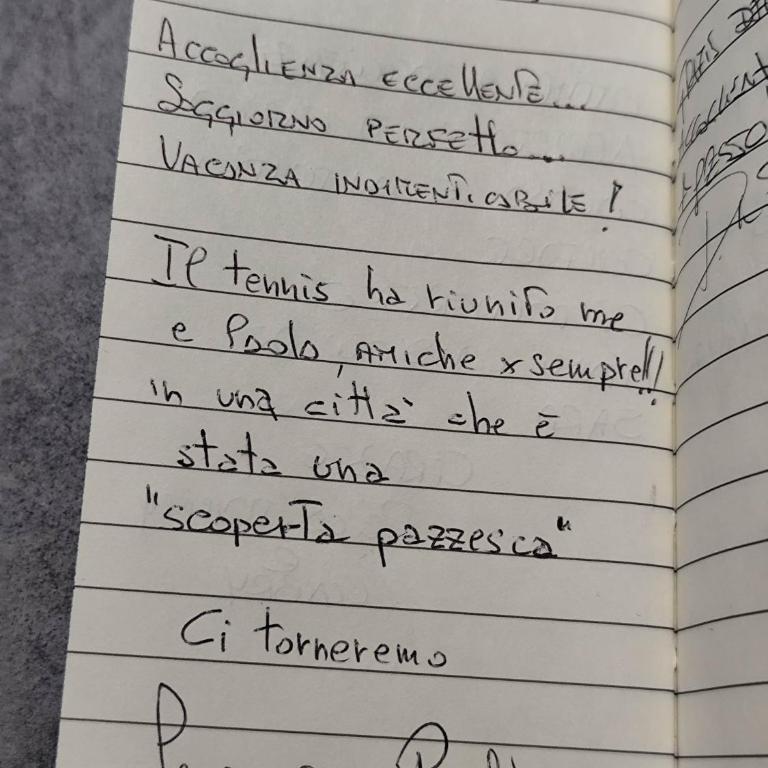 ACCOGLIENZA ECCELLENTE...
SOGGIORNO PERFETTO...
VACANZA INDIMENTICABILE!
Il tennis ha riunito me
e Paola, AMICHE x sempre!!!
in una città che è
stata una
"scoperta pazzesca"
Ci torneremo